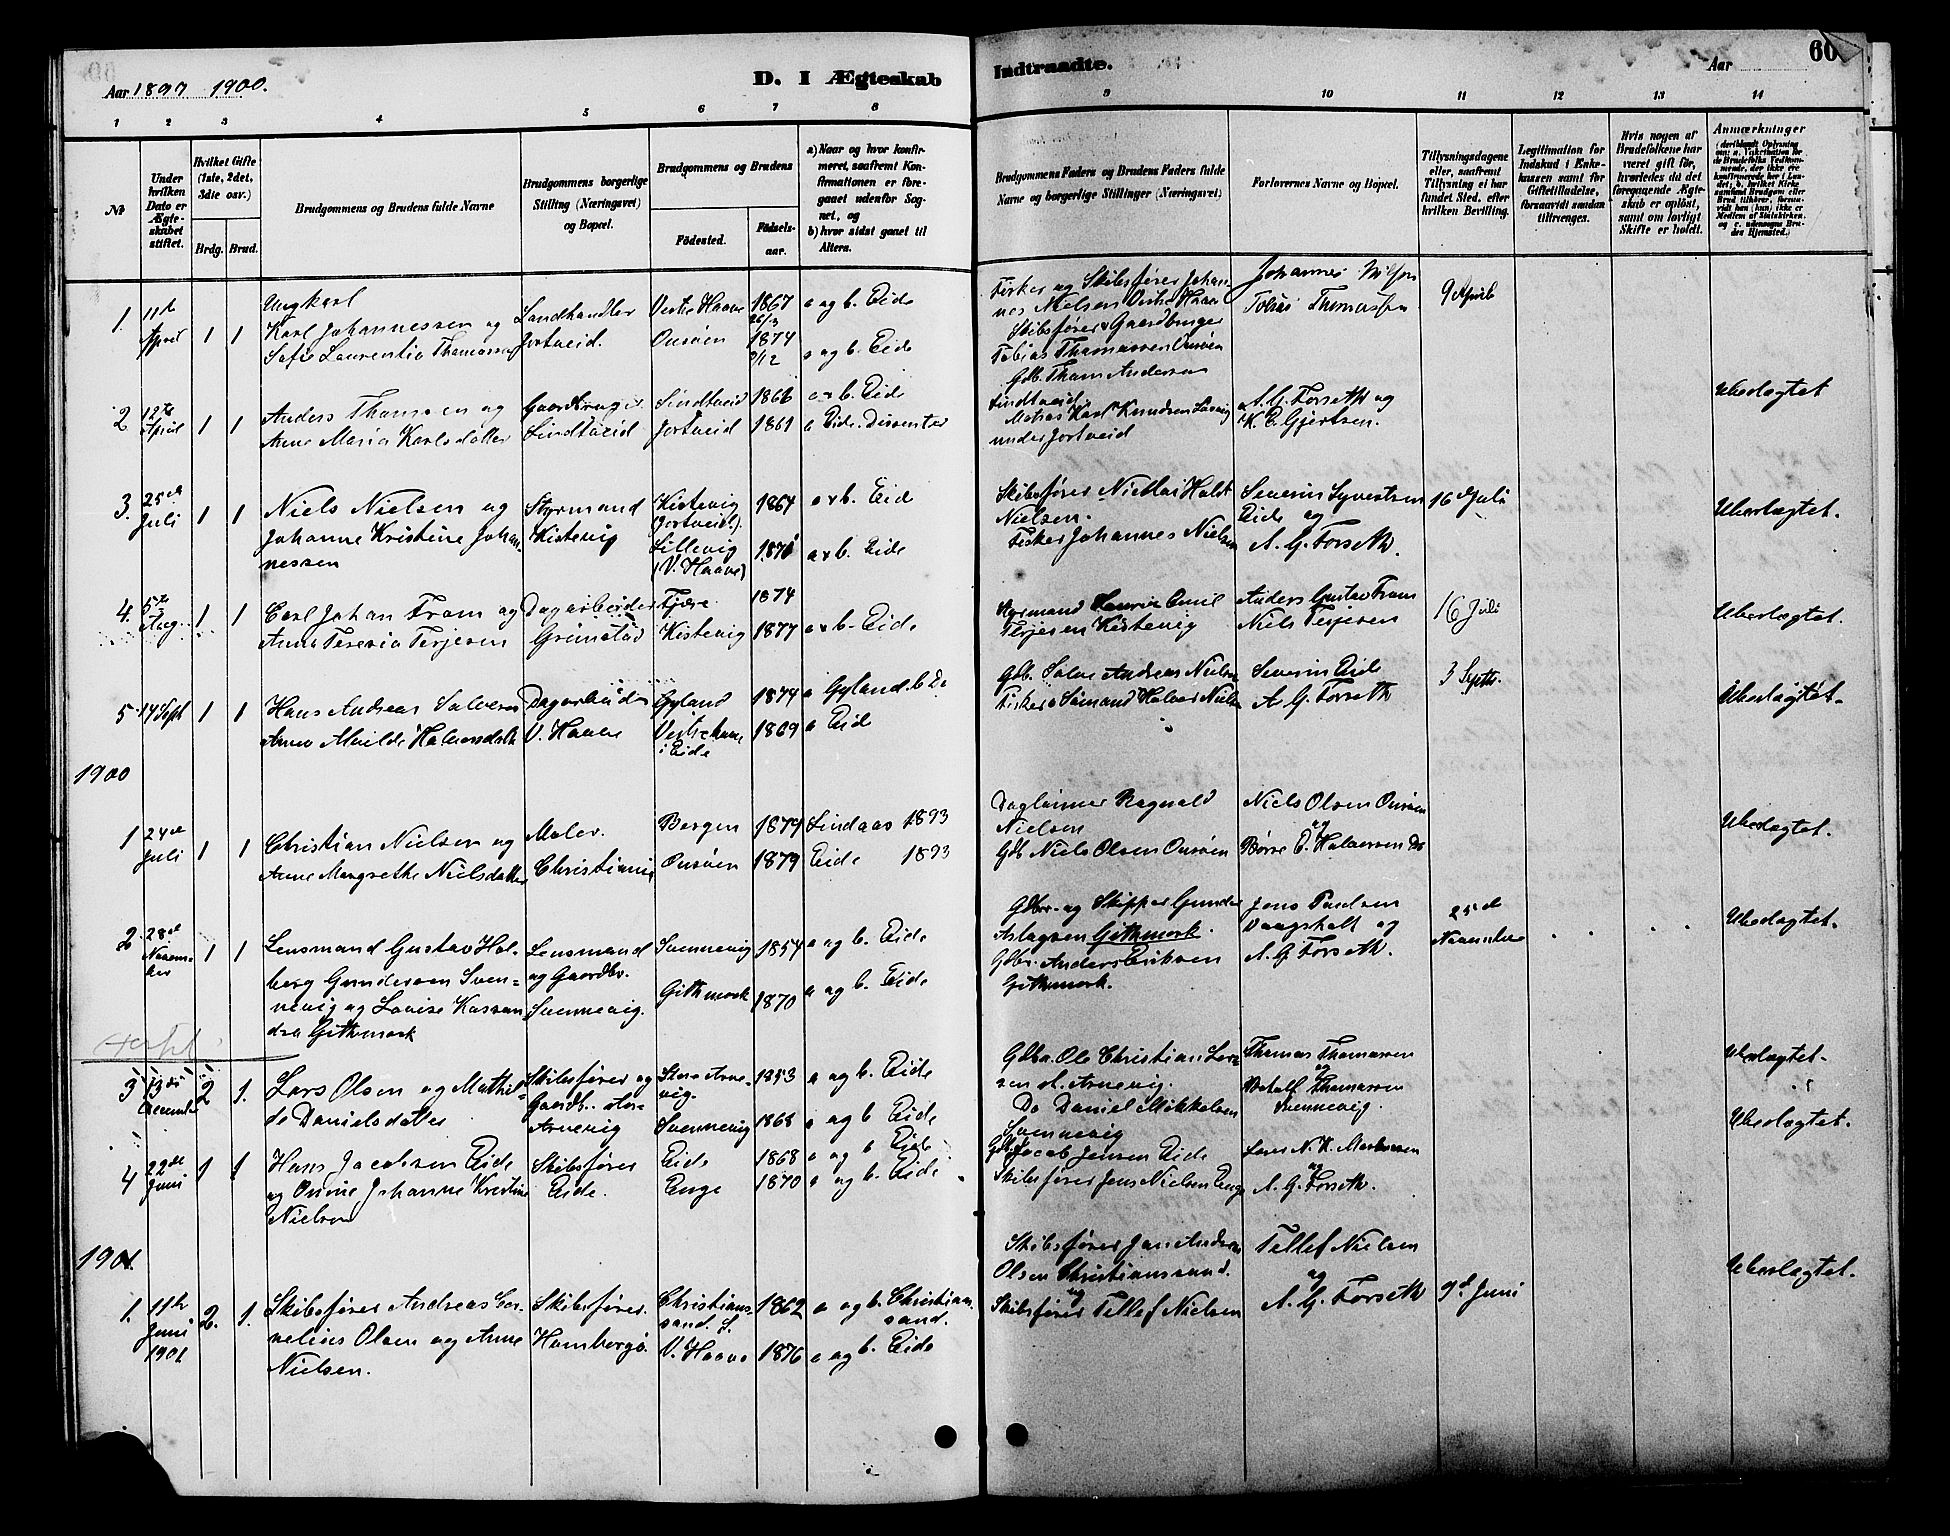 Aar 1897 1900.
D. I Ægteskab
Indtraadte.
Aar
60
1 2 3 4 5 6 7 8 9 10 11 12 13 14
№
Under hvilken Dato er Ægteskabet stiftet.
Hvilket Gifte (1ste, 2det, 3die osv.)
Brdg. Brud.
Brudgommens og Brudens fulde Navne
Brudgommens borgerlige Stilling (Næringsvei) og Bopæl.
Brudgommens og Brudens
Fødested.
Fødselsaar.
a) Naar og hvor konfirmeret, saafremt Konfirmationen er foregaaet udenfor Sognet, og
b) hvor sidst gaaet til Alters.
Brudgommens Faders og Brudens Faders fulde Navne og borgerlige Stillinger (Næringsvei)
Forlovernes Navne og Bopæl.
Tillysningsdagene eller, saafremt Tillysning ei har fundet Sted, efter hvilken Bevilling.
Legitimation for Indskud i Enkekassen samt for Giftetilladelse, forsaavidt saadan tiltrænges.
Hvis nogen af Brudefolkene har været gift før, hvorledes da det foregaaende Ægteskab er opløst, samt om lovligt Skifte er holdt.
Anmærkninger
1. 11te April 1 1
Ungkarl
Karl Johannessen og
Sofie Laurentia Thomassen
Landhandler
Jortveid.
Vestre Haave 1867 26/3 a og b. Eide
Ousøen 1874 9/12 a og b. Eide
Fisker og Skibsfører Johan-
nes Nielsen Vestre Haave
Skibsfører & Gaardbruger
Tobias Thomassen Ousøen
Johannes Nilsen
Tobias Thomassen
9 April
2 12te April 1 1
Anders Thomsen og
Anne Maria Karlsdatter
Gaardbruger
Lindtveid
Lindtveid 1866 a & b. Eide
Jortveid 1861 a Eide. Dissenter
Gdb. Thom Andersen
Lindtveid
Matros Karl Knudsen
under Jortveid
A. G. Forseth og
K. E. Gjertsen.
Ubeslægtet
3. 25de Juli 1 1
Niels Nielsen og
Johanne Kristine Johan-
nessen
Styrmand
Kistevig
Kistevig (Jortveid). 1864 a & b. Eide
Lillevig (V. Haave) 1871 a & b. Eide
Skibsfører Nicolai Holst
Nielsen.
Fisker Johannes Nielsen
Severin Syvertsen
Eide og
A. G. Forseth.
16 Juli
Ubeslægtet.
4. 5te Aug. 1 1
Carl Johan Fram og
Anna Teresia Terjesen
Dagarbeider
Grimstad
Fjære 1874
Kistevig 1877 a & b. Eide
Terjesen Kistevig
Anders Gustav Fram
Niels Terjesen
16 Juli
Ubeslægtet.
5. 14 Sept 1 1
Hans Andreas Salvesen
Anne Mathilde Halvorsdatter
Dagarbeider
V. Haave
Gyland 1874 a Gyland. b Do
Vestre Haave i Eide 1869 a Eide
Gdb. Salve Andreas Nielsen
Fisker & Sømand Halvor Nielsen
Severin Eide
A. G. Forseth
3 Septbr.
Ubeslægtet.
1900
1 24de Juli 1 1
Christian Nielsen og
Anne Margrethe Nielsdatter
Maler.
Christiania
Bergen 1874 Lindaas 1893
Ousøen 1879 Eide 1893
Daglønner Ragnald
Nielsen
Gdb Niels Olsen Ousøen
Niels Olsen Ousøen
og
Børse O. Halvorsen Do
Ubeslægtet.
2. 28de November 1 1
Lensmand Gustav Hol-
berg Gundersen Sven-
nevig og Lovise Kassan-
dra Githmark
Lensmand
og Gaardbr.
Svennevig.
Svennevig 1854 a og b. Eide
Githmark 1870 a og b. Eide
Gdbr. og Skipper Gunder
Aslagsen Githmark.
Gdbr. Anders Eriksen
Githmark.
Jens Paulsen
Vaagsholt og
A. G. Forseth.
25de November
Ubeslægtet.
3 13de December 2 1.
Lars Olsen og Mathil-
de Danielsdatter
Skibsfører og
Gaardb. store
Arnevig
Store Arne-
vig. 1853 a og b. Eide
Svennevig 1868 a og b Eide
Gdbr. Ole Christian Lar-
sen st. Arnevig.
Do Daniel Mikkelsen
Svennevig
Thomas Thomassen
og
Thomassen
Svennevig.
Ubeslægtet.
4 22de Juni 1 1
Hans Jacobsen Eide
og Onine Johanne Kristine
Nielsen
Skibsfører
Eide.
Eide 1868 a og b Eide
Enge 1870 a og b. Eide
Gdb. Jacob Jensen Eide
Skibsfører Jens Nielsen Enge
Lars N. K.
og
A. G. Forseth.
Ubeslægtet.
1901.
1. 11te Juni 1901 2. 1.
Skibsfører Andreas Cor-
nelius Olsen og Anne
Nielsen.
Skibsfører.
Homborgø.
Christians-
sand. S. 1862 a og b. Christian-
sand.
V. Haave 1876 a og b. Eide
Skibsfører Jan Andreas
Olsen Christianssand.
og
Skibsfører Tellef Nielsen
Tellef Nielsen
og
A. G. Forseth
9de Juni
Ubeslægtet.